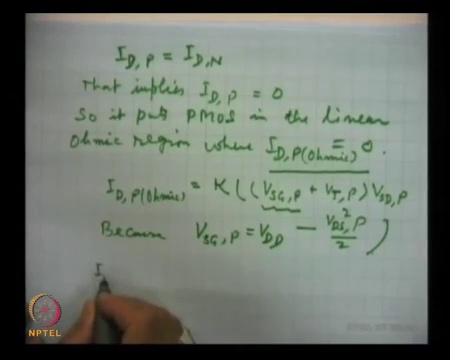 I_D,P = I_D,N
That implies I_D,P = 0
So it puts PMOS in the linear
Ohmic region where I_D,P(Ohmic) = 0.
I_D,P(Ohmic) = K((V_SG,P + V_T,P) V_SD,P
Because V_SG,P = V_DD - V_DS,P^2/2)
I
NPTEL